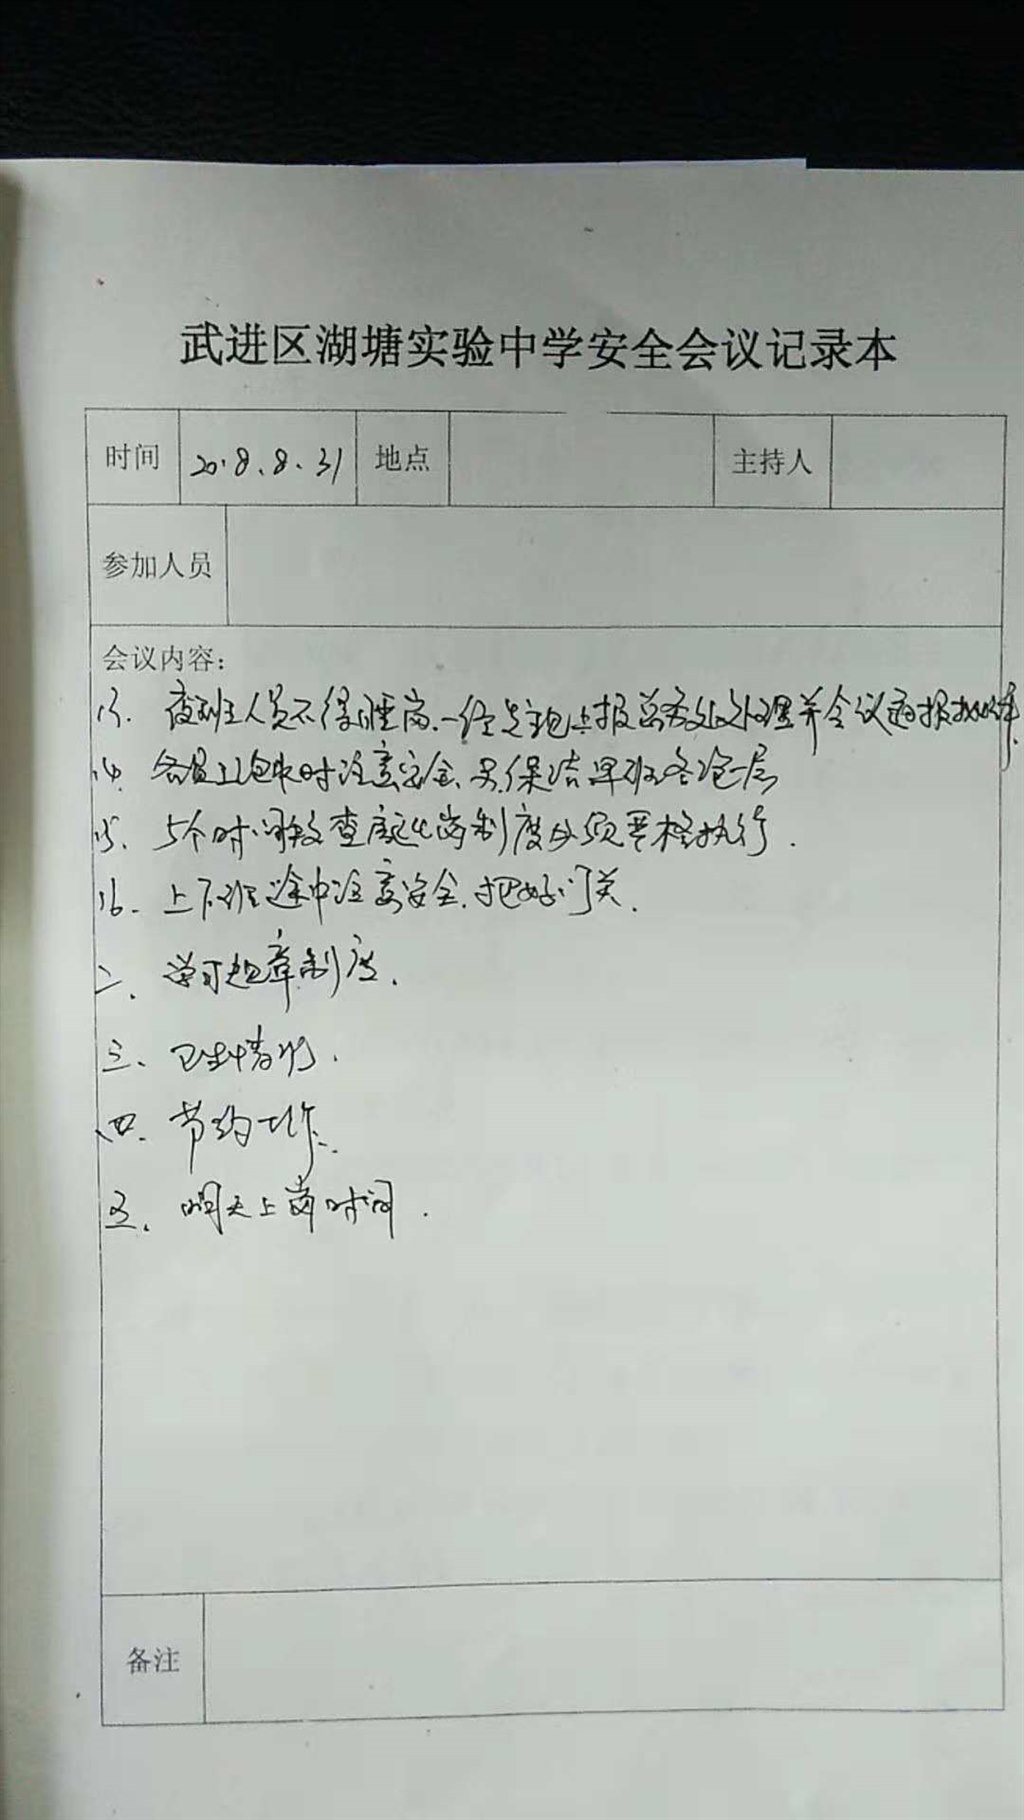 武进区湖塘实验中学安全会议记录本
时间 2018.8.31 地点 主持人
参加人员
会议内容:
13. 夜班人员不得睡岗、一经发现上报总务处处理并会议通报
14. 各 时注意安全、 保洁早班各 一层
15. 5个时间段查 岗制度必须严格执行.
16. 上下班途中注意安全、把好门关.
二、学习规章制度.
三、卫生情况.
四、节约工作.
五、明天上岗时间.
备注